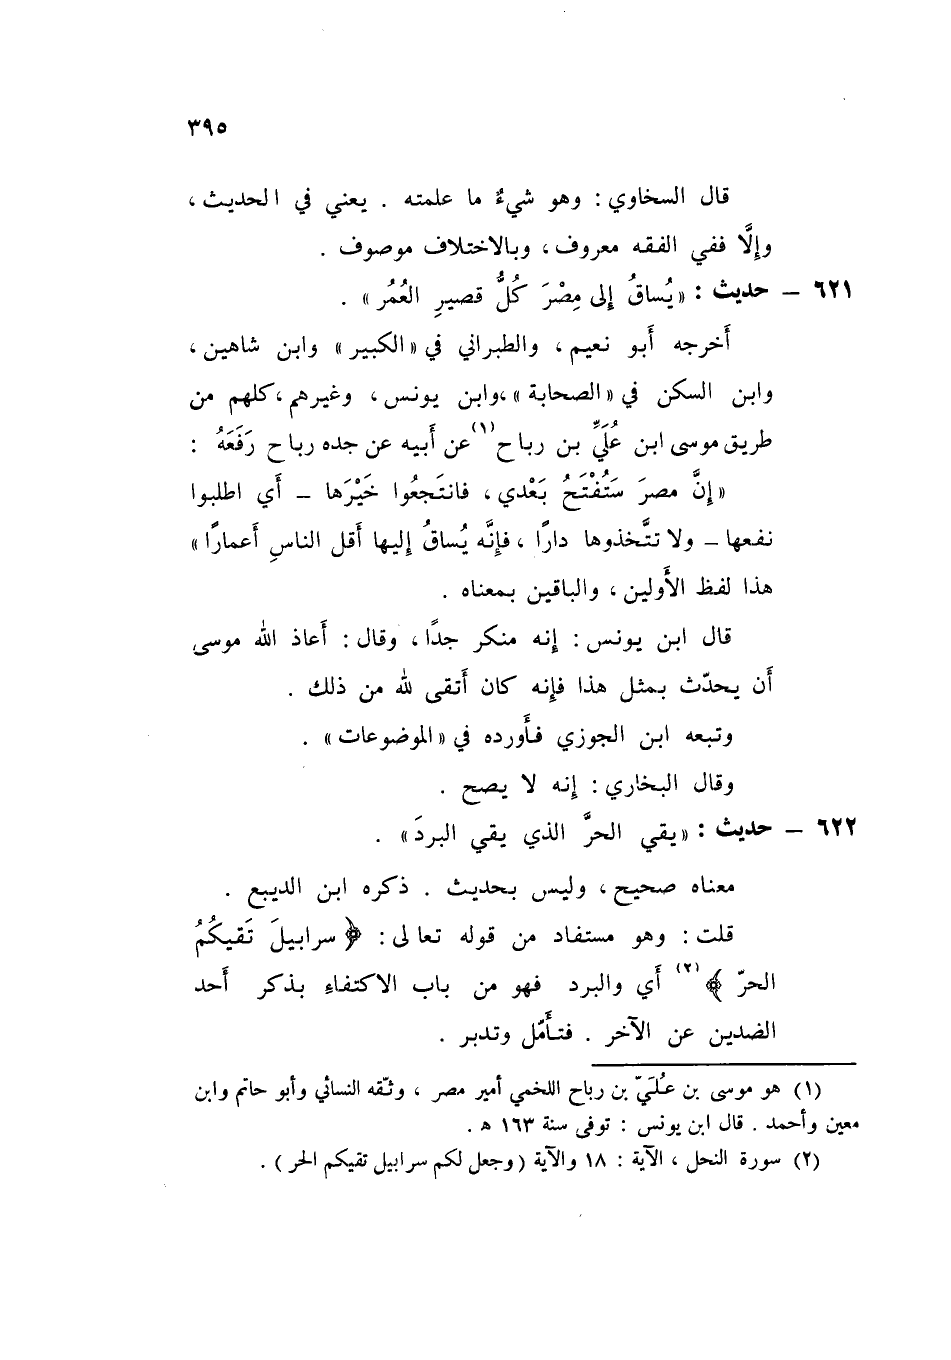 ٣٩٥
قال السخاوي : وهو شيءٌ ما علمته . يعني في الحديث ،
وإلَّا ففي الفقه معروف ، وبالاختلاف موصوف .
٦٢١ – حديث : « يُساقُ إلى مِصْرَ كُلُّ قصيرِ العُمُر » .
أخرجه أبو نعيم ، والطبراني في « الكبير » وابن شاهين ،
وابن السكن في « الصحابة » ،وابن يونس ، وغيرهم ،كلهم من
طريق موسى ابن عُلَيِّ بن رباح (١) عن أبيه عن جده رباح رَفَعَهُ :
« إنَّ مصرَ سَتُفْتَحُ بَعْدي ، فانتَجعُوا خَيْرَها – أي اطلبوا
نفعها – ولا تتَّخذوها دارًا ، فإنَّه يُساقُ إليها أقل الناسِ أعمارًا »
هذا لفظ الأولين ، والباقين بمعناه .
قال ابن يونس : إنه منكر جدًا ، وقال : أعاذ الله موسى
أن يحدّث بمثل هذا فإنه كان أتقى لله من ذلك .
وتبعه ابن الجوزي فأورده في « الموضوعات » .
وقال البخاري : إنه لا يصح .
٦٢٢ – حديث : « يقي الحرَّ الذي يقي البردَ » .
معناه صحيح ، وليس بحديث . ذكره ابن الديبع .
قلت : وهو مستفاد من قوله تعالى : ﴿ سرابيلَ تَقيكُمُ
الحرّ ﴾ (٢) أي والبرد فهو من باب الاكتفاء بذكر أحد
الضدين عن الآخر . فتأمّل وتدبر .
(١) هو موسى بن عُلَيّ بن رباح اللخمي أمير مصر ، وثّقه النسائي وأبو حاتم وابن
معين وأحمد . قال ابن يونس : توفى سنة ١٦٣ ه .
(٢) سورة النحل ، الآية : ١٨ والآية ( وجعل لكم سرابيل تقيكم الحر ) .